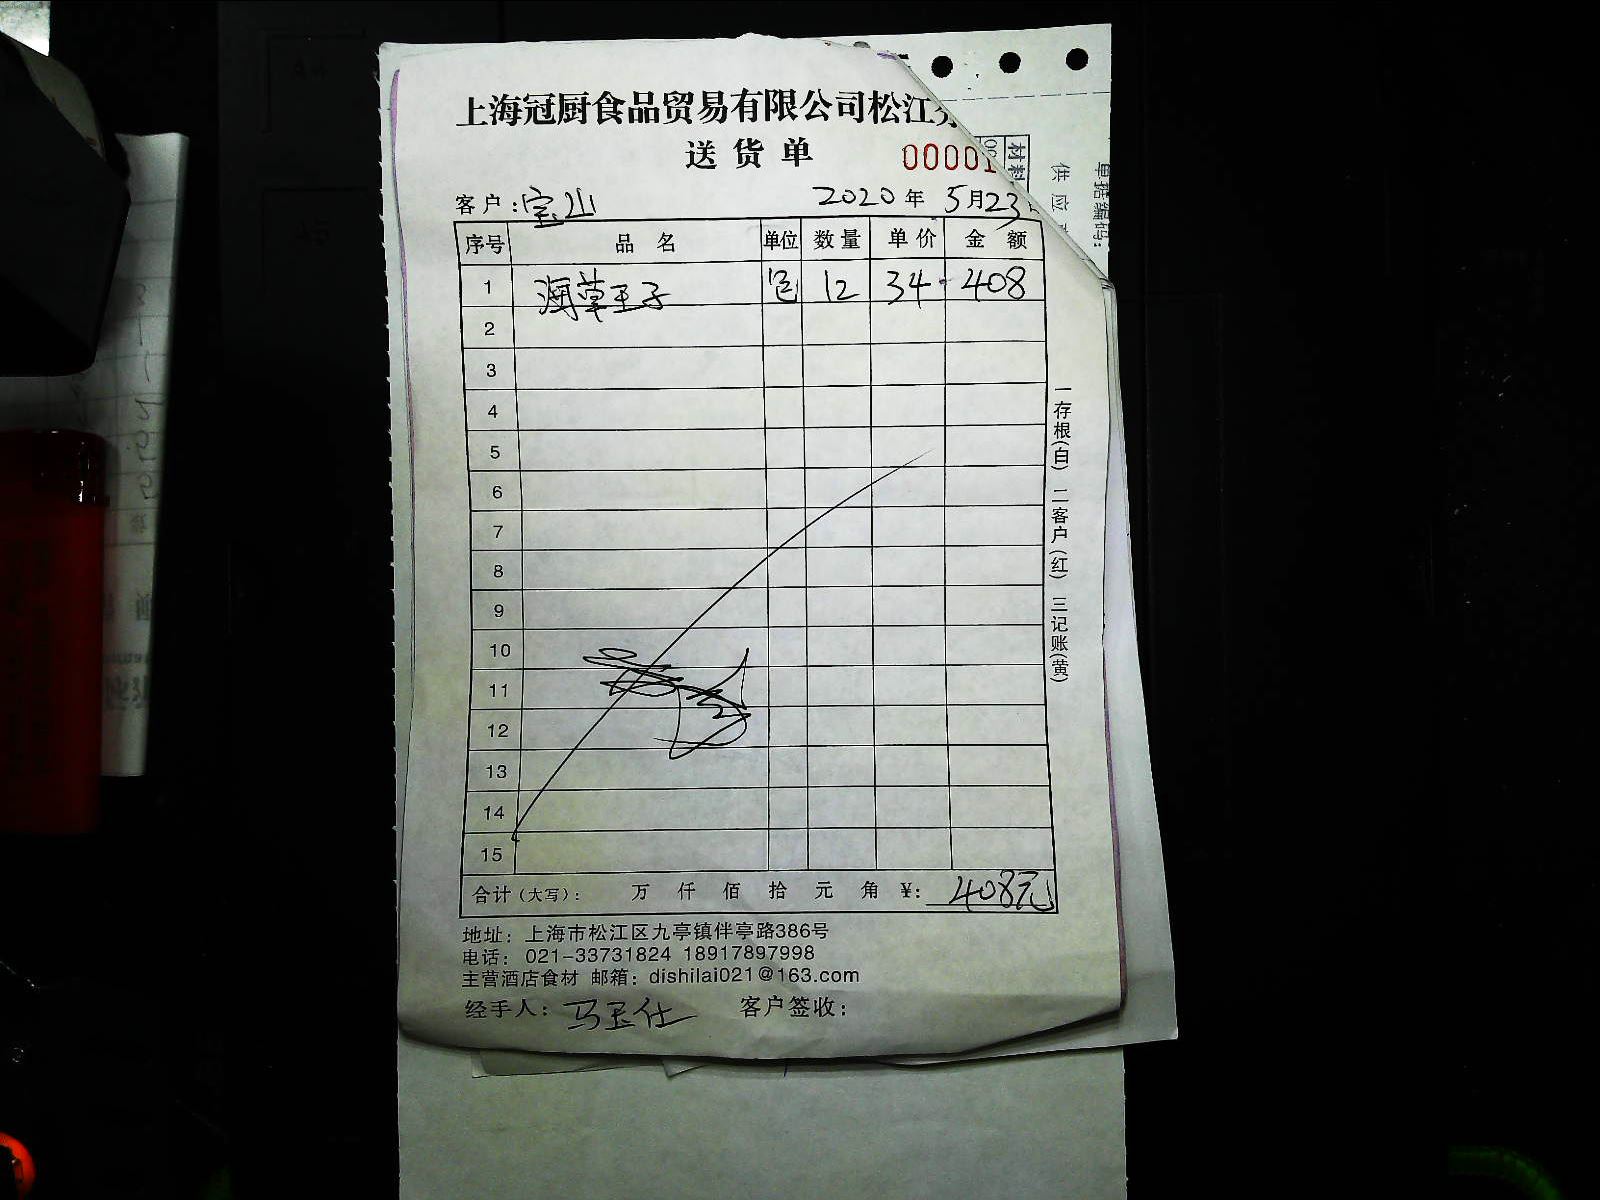 上海冠厨食品贸易有限公司松江
送货单
00001
客户:宝山 2020年5月23
序号 品名 单位 数量 单价 金额
1 海草王子 包 12 34 408
2
3
4
5
6
7
8
9
10
11
12
13
14
15
合计(大写): 万 仟 佰 拾 元 角 ¥: 408元
地址: 上海市松江区九亭镇伴亭路386号
电话: 021-33731824 18917897998
主营酒店食材 邮箱: dishilai021@163.com
经手人: 马玉仕 客户签收:
一存根(白) 二客户(红) 三记账(黄)
材料
供应
单据编码: